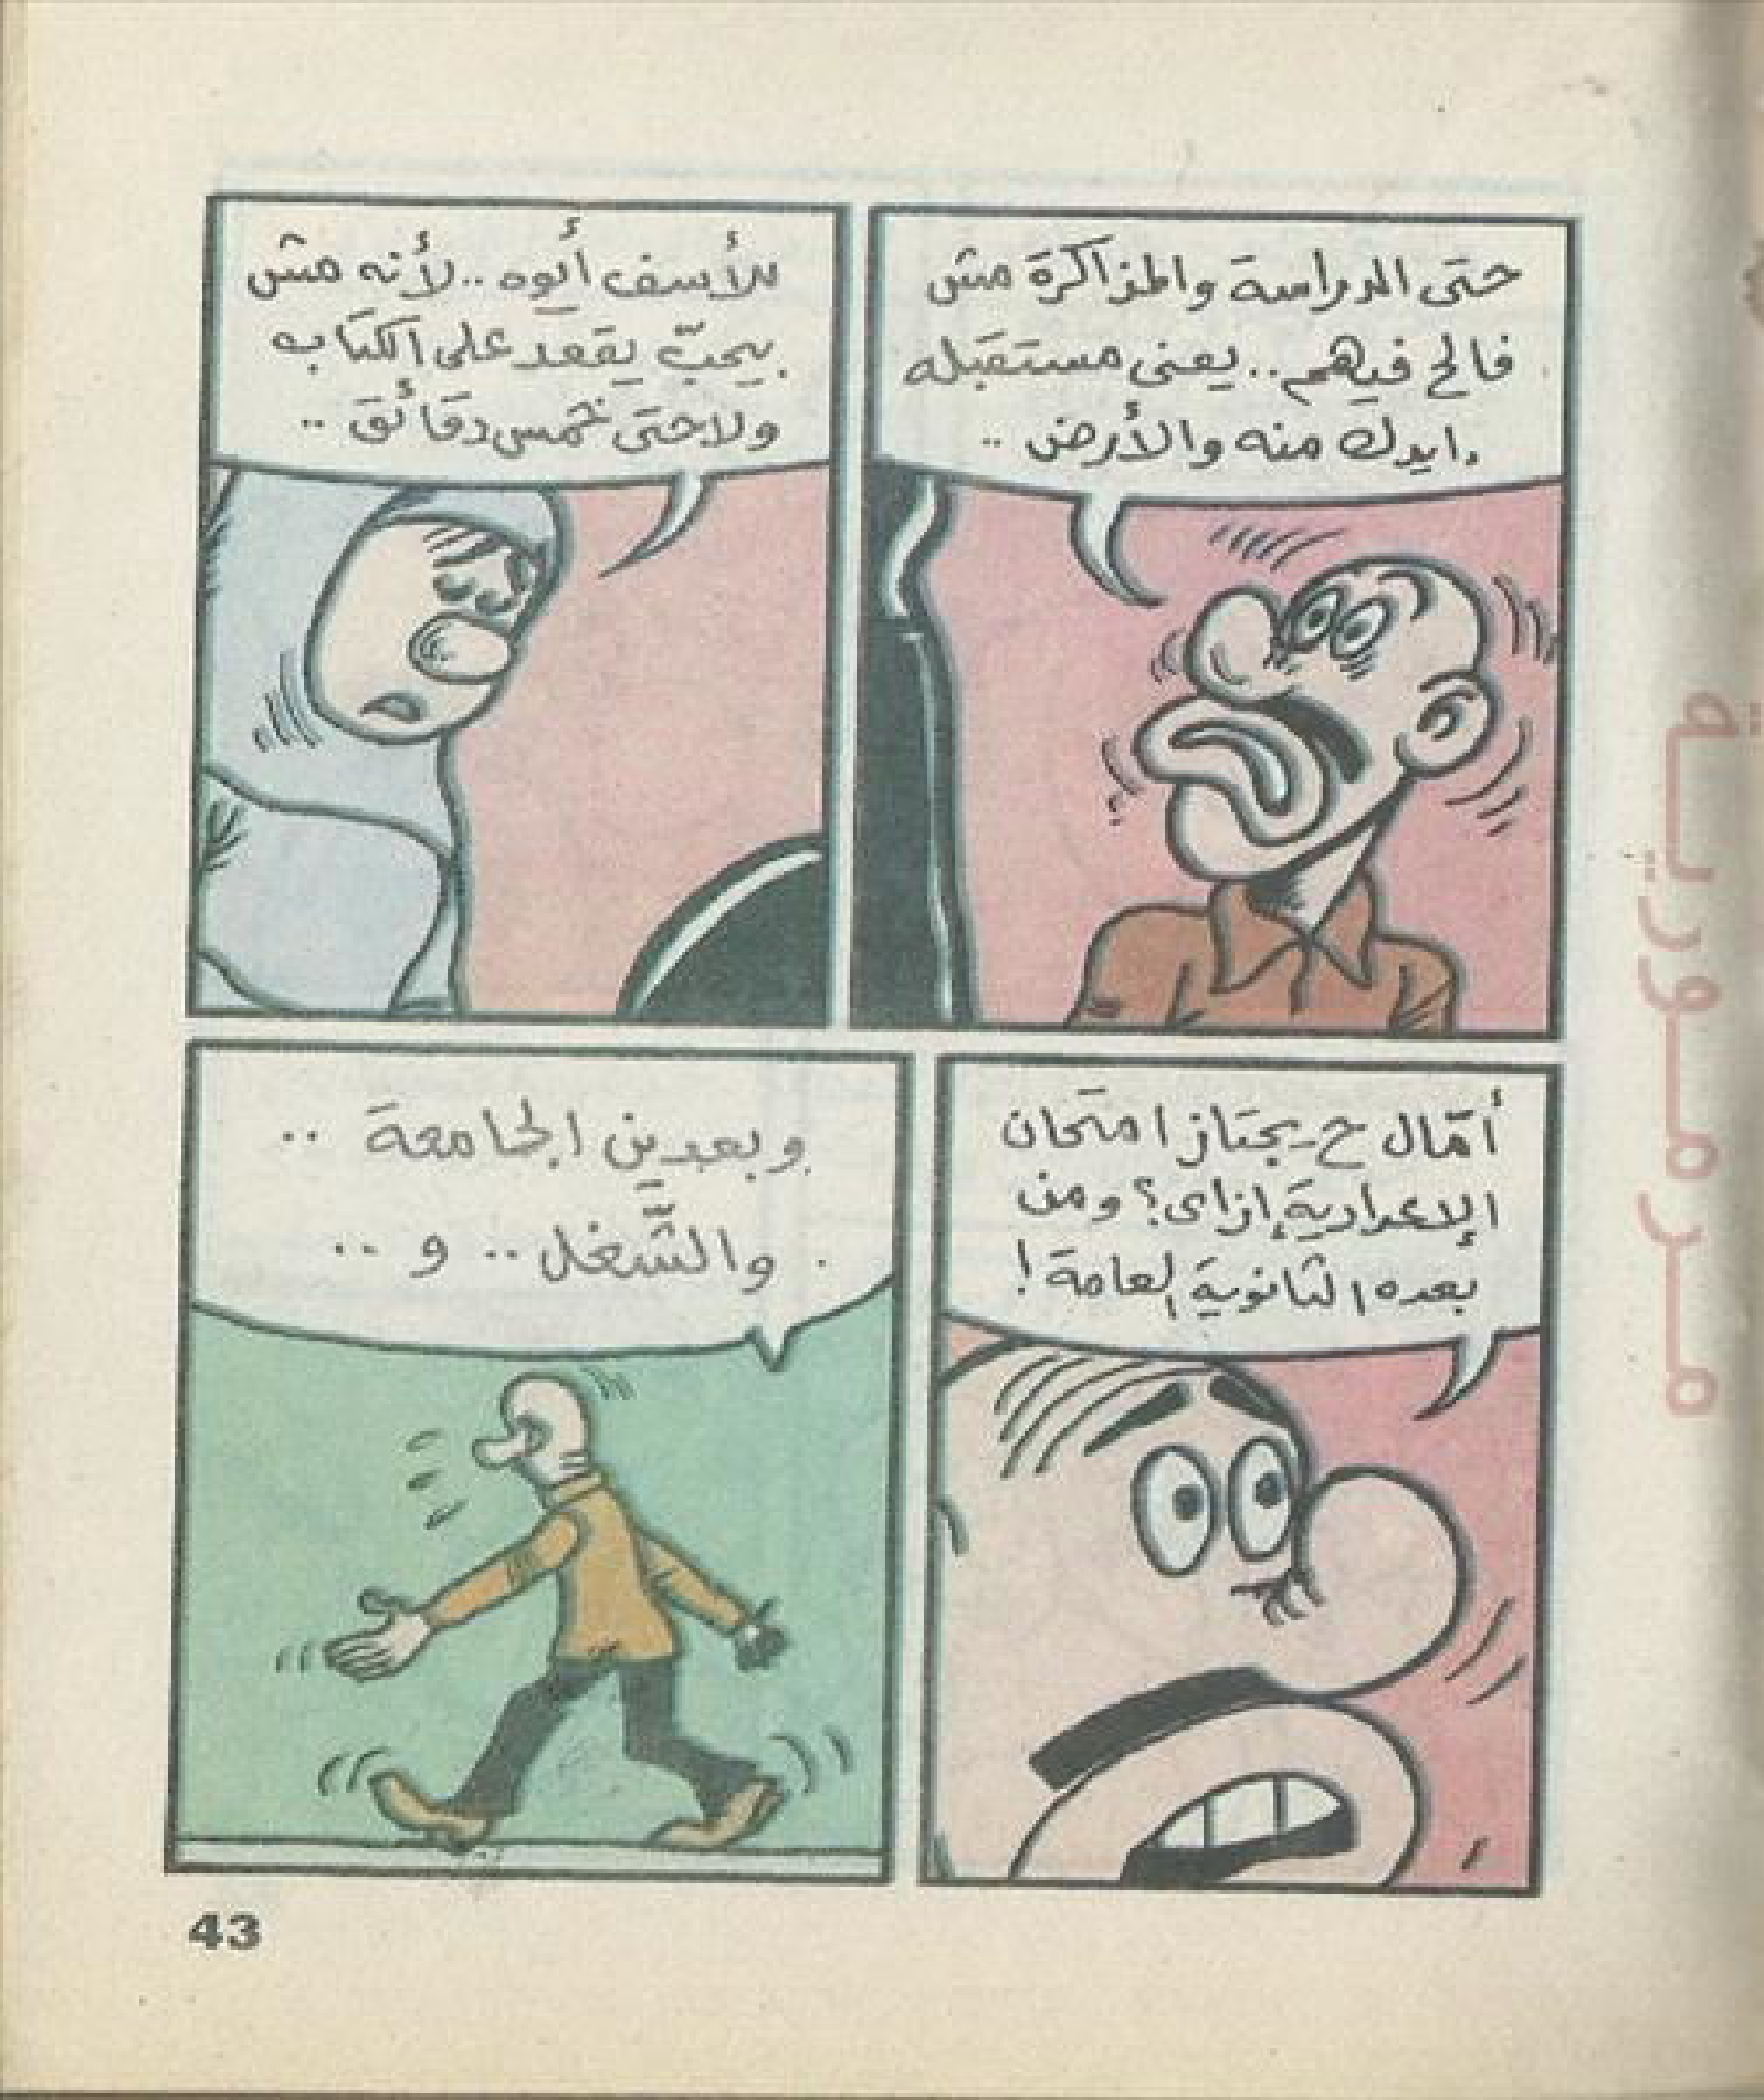 حتى الدراسة والمذاكرة مش
فالح فيهم.. يعنى مستقبله
ايدك منه والأرض ..
للأسف أيوه .. لأنه مش
بيحبّ يقعد على الكتاب
ولا حتى خمس دقائق ..
أمّال ح يجتاز امتحان
الإعدادية إزاى؟ ومن
بعده الثانوية العامة!
وبعدين الجامعة ..
والشّغل .. و ..
43